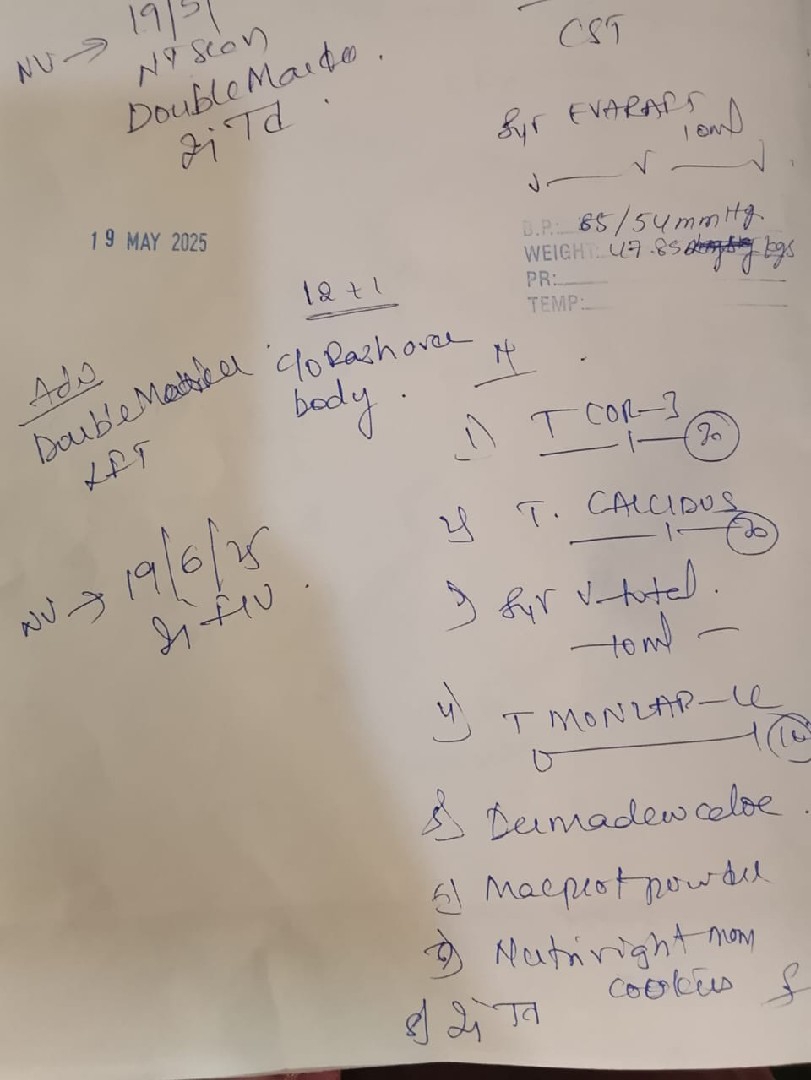 19/5/
NV → NT Scan
Double Marker.
Inj Td.
CST
Syr EVAPAPS
10ml
19 MAY 2025
B.P: 85/54 mmHg.
WEIGHT: 47.85 kgs
PR:
TEMP:
12 + 1
Adv
Double Marker
LFT
c/o Rash over
body.
1) T COR-3
1 30
2) T. CALCIDUS
1 30
3) Syr V-total.
10ml
4) T MONZAP-LC
0 1 10
NV → 19/6/25
5) Dermadew caloe.
6) Macprot powder
7) Nutriright mom
cookies
8) Inj Td